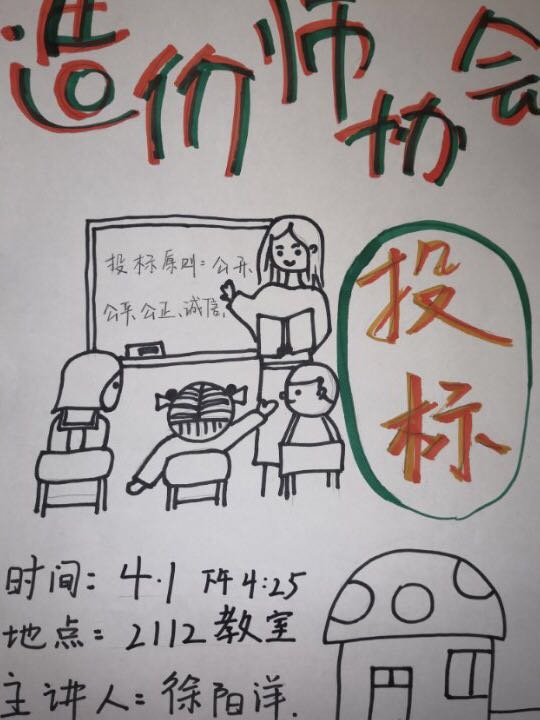 造价师协会
投标原则：公开、
公平、公正、诚信.
投
标
时间：4.1 下午4:25
地点：2112教室
主讲人：徐阳洋.